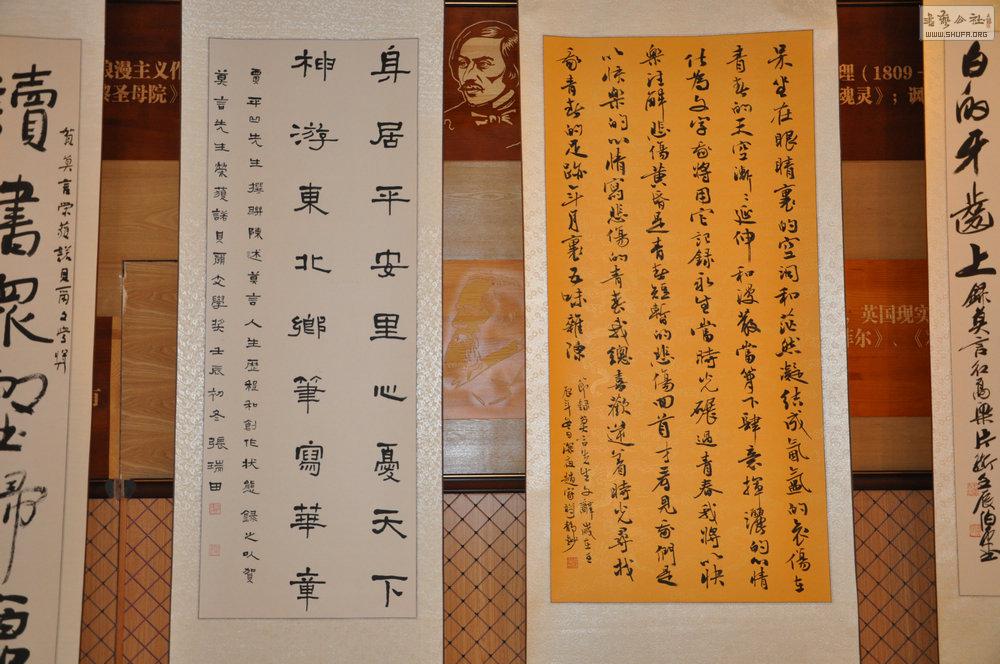 書藝公社
WWW.SHUFA.ORG
白的牙齒上
錄莫言紅高粱片斷壬辰
理（1809－
魂灵》；讽
英国现实
呆坐在眼睛裏的空洞和茫然凝結成氤氳的哀傷在
青春的天空漸漸延伸和漫散當筆下肆意揮灑的心情
化為文字我將用它記錄永生當時光碾過青春我將以快
樂注解悲傷黃昏是青春短暫的悲傷回首才看見我們是
以快樂的心情寫悲傷的青春我總喜歡逆着時光尋找
我青春的足跡年月裏五味雜陳
節錄莫言先生文辭歲在壬
辰年冬日深夜趙
身居平安里心憂天下
神游東北鄉筆寫華章
賈平凹先生撰聯陳述莫言人生歷程和創作狀態錄之以賀
莫言先生榮獲諾貝爾文學奖壬辰初冬張瑞田
浪漫主义作
黎圣母院》
讀書眾壑歸
賀莫言榮獲諾貝爾文學獎